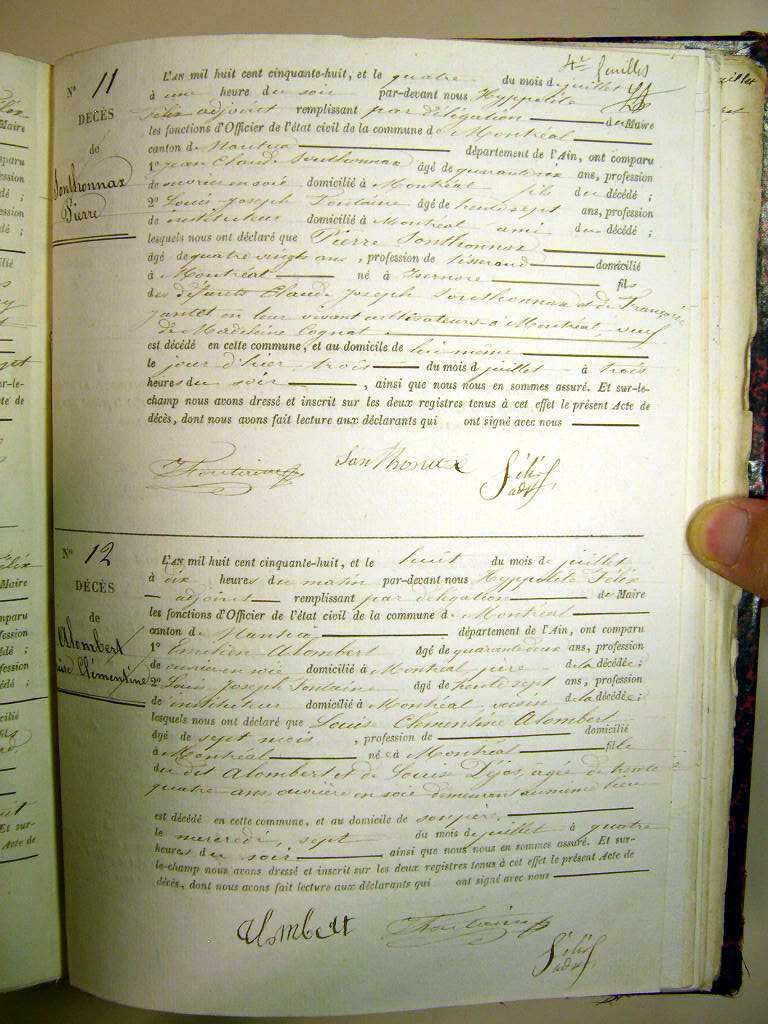 4e feuillet
N° 11
DÉCÈS
de
Sonthonnax
Pierre
L'AN mil huit cent cinquante-huit, et le quatre du mois de juillet
à une heure du soir par-devant nous Hyppolite
Félix adjoint remplissant par délégation du Maire
les fonctions d'Officier de l'état civil de la commune de Montréal
canton de Nantua département de l'Ain, ont comparu
1° Jean Claude Sonthonnax âgé de quarante six ans, profession
de ouvrier en soie domicilié à Montréal fils du décédé ;
2° Louis Joseph Fontaine âgé de trente sept ans, profession
de instituteur domicilié à Montréal ami du décédé ;
lesquels nous ont déclaré que Pierre Sonthonnax
âgé de quatre vingts ans, profession de tisserand domicilié
à Montréal né à Izernore fils
des défunts Claude Joseph Sonthonnax et de Françoise
Jantet en leur vivant cultivateurs à Montréal, veuf
de Madeleine Cognat
est décédé en cette commune, et au domicile de lui-même
le jour d'hier trois du mois de juillet à trois
heures du soir, ainsi que nous nous en sommes assuré. Et sur-le-
champ nous avons dressé et inscrit sur les deux registres tenus à cet effet le présent Acte de
décès, dont nous avons fait lecture aux déclarants qui ont signé avec nous
Fontaine Sonthonax Félix
adjt
N° 12
DÉCÈS
de
Alombert
Clémentine
L'AN mil huit cent cinquante-huit, et le huit du mois de juillet
à dix heures du matin par-devant nous Hyppolite Félix
adjoint remplissant par délégation du Maire
les fonctions d'Officier de l'état civil de la commune de Montréal
canton de Nantua département de l'Ain, ont comparu
1° Emilien Alombert âgé de quarante deux ans, profession
de ouvrier en soie domicilié à Montréal père de la décédée ;
2° Louis Joseph Fontaine âgé de trente sept ans, profession
de instituteur domicilié à Montréal voisin de la décédée ;
lesquels nous ont déclaré que Louise Clémentine Alombert
âgé de sept mois, profession de domicilié
à Montréal né e à Montréal fille
du dit Alombert et de Louise Déjos, agée de trente
quatre ans ouvrière en soie demeurant au même lieu
est décédé en cette commune, et au domicile de son père,
le mercredi, sept du mois de juillet à quatre
heures du soir ainsi que nous nous en sommes assuré. Et sur-
le-champ nous avons dressé et inscrit sur les deux registres tenus à cet effet le présent Acte de
décès, dont nous avons fait lecture aux déclarants qui ont signé avec nous
Alombert Fontaine
Félix
adjt